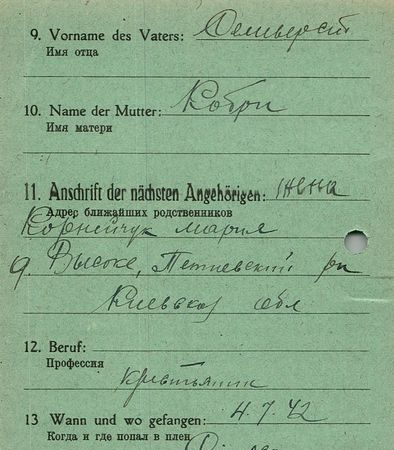 9. Vorname des Vaters: Сельверст
Имя отца
10. Name der Mutter:
Имя матери
11. Anschrift der nächsten Angehörigen: жена
Адрес ближайших родственников
Корнейчук Мария
Высоке, Петиевский рн
Киевской обл
12. Beruf:
Профессия
крестьянин
13 Wann und wo gefangen: 4.7.42
Когда и где попал в плен